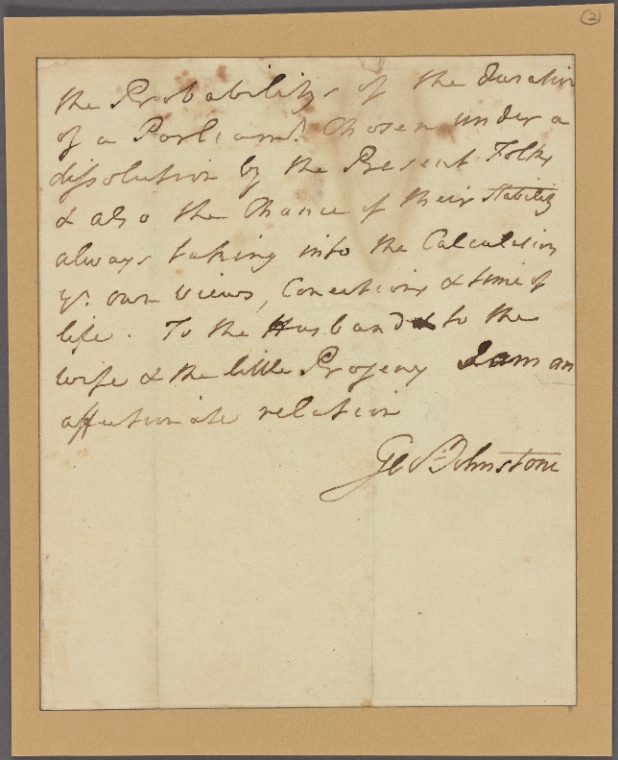 2
the Probability of the duration
of a Parliamt. Chosen under a
dissolution by the Present Folks
& also the Chance of their stability
always taking into the Calculation
yr. own views, Conections & time of
life. To the Husband & to the
wife & the little Progeny I am an
affectionate relation
Geo Johnstone